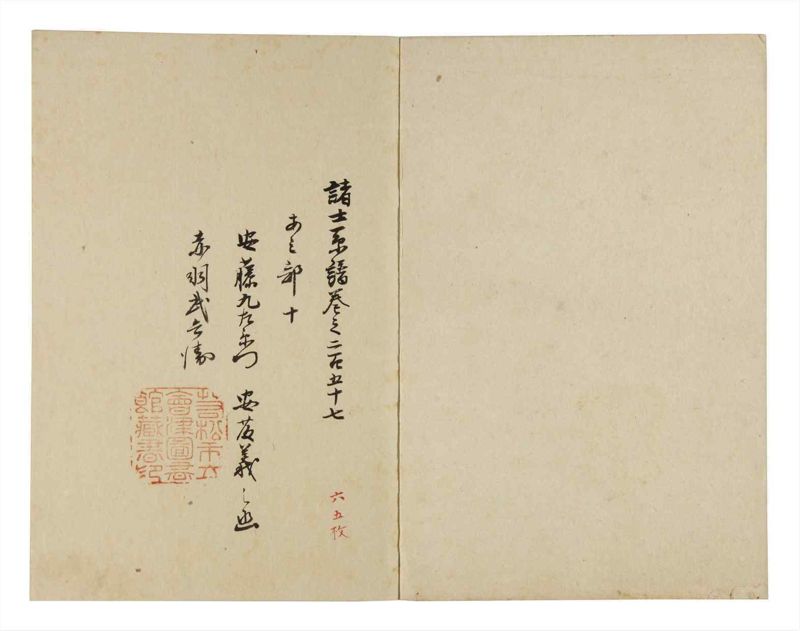 諸士系譜巻之二百五十七
あ之部 十
安藤九左衛門 安藤義之丞
赤羽武兵衛
六五枚
若松市立
會津圖書
館藏書印